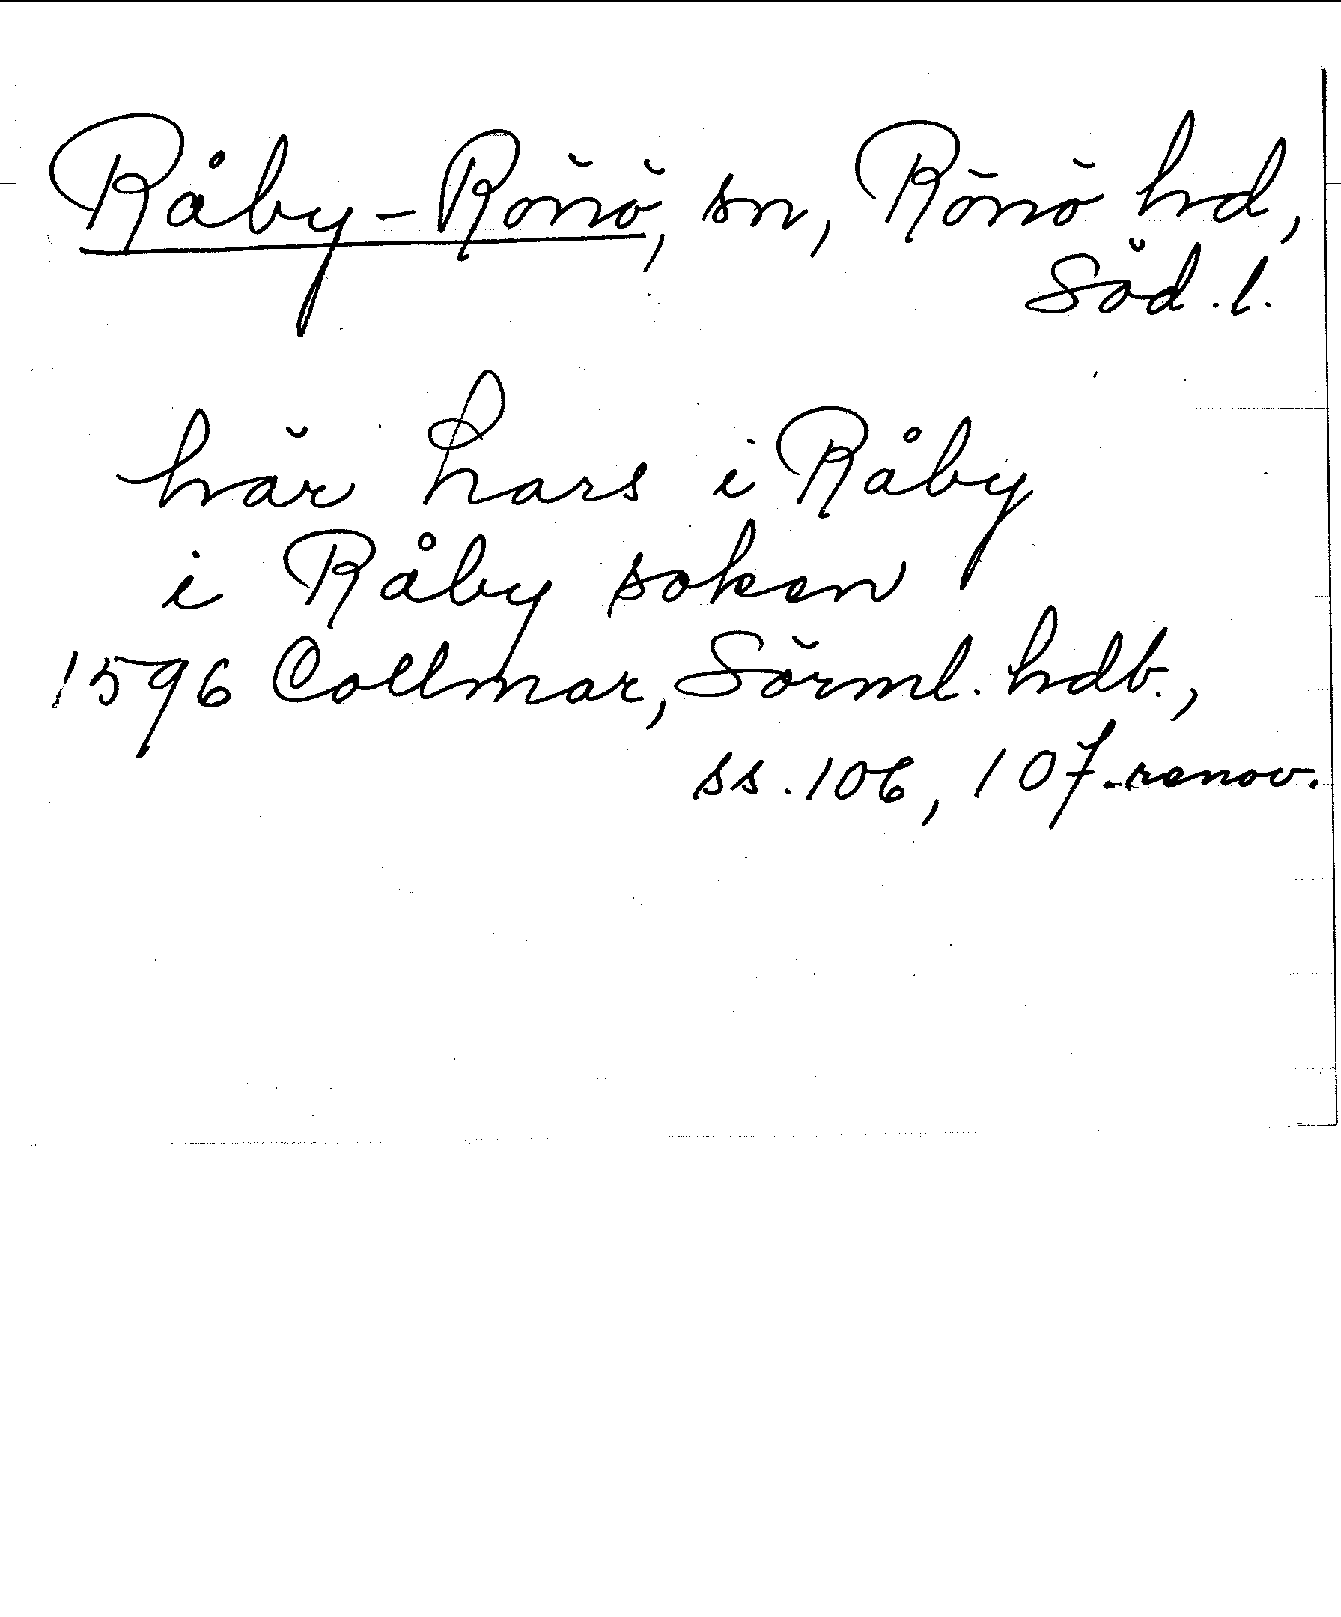 Råby-Rönö, sn, Rönö hd,
Söd. l.
här hars i Råby
i Råby soken
1596 Collmar, Sörml. hdb.,
ss. 106, 107. renov.